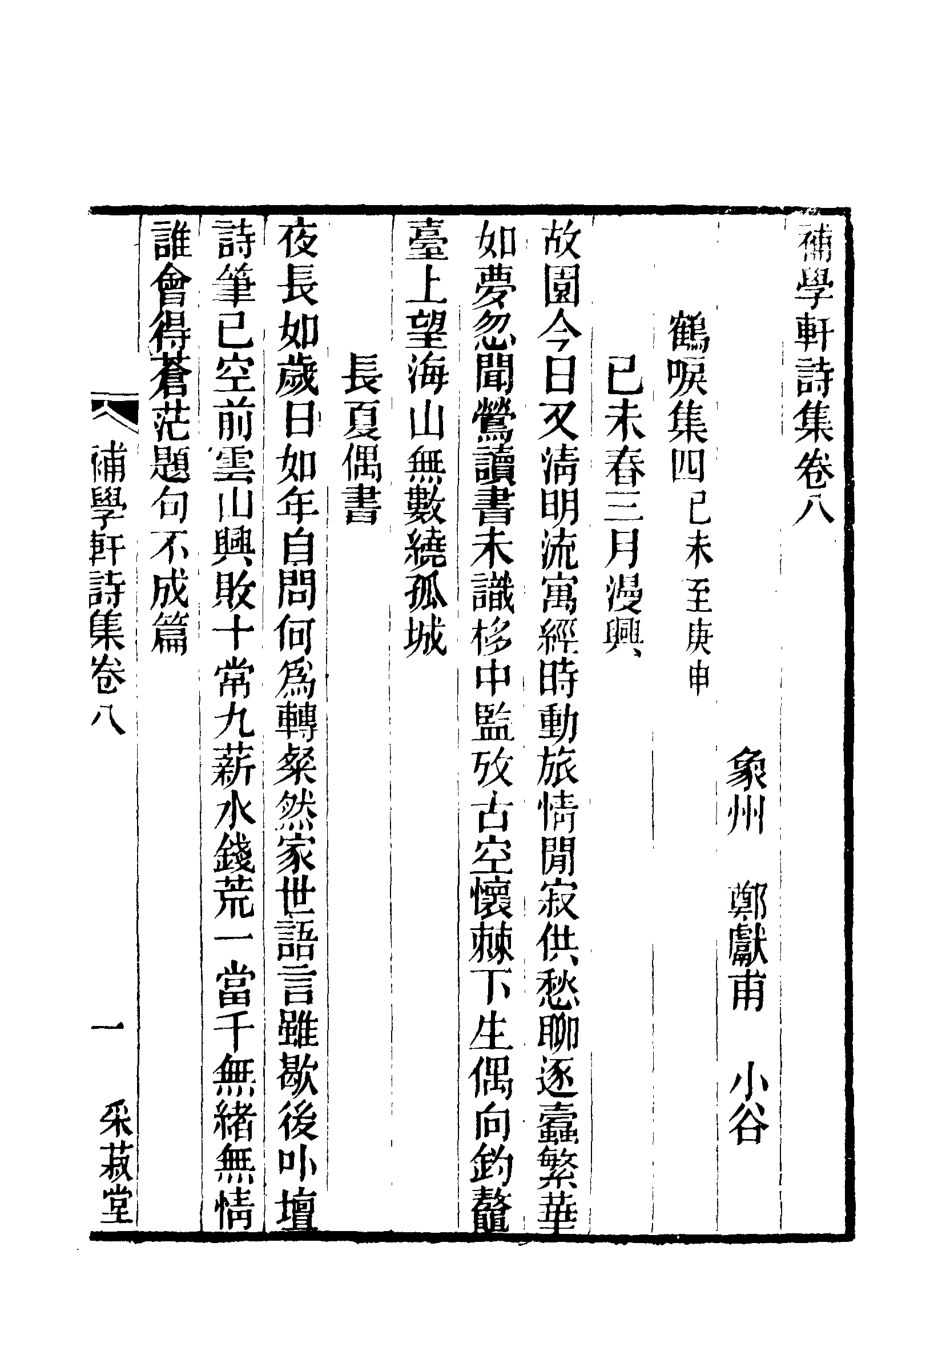 補學軒詩集卷八
象州　鄭獻甫　小谷
鶴唳集四己未至庚申
己未春三月漫興
故園今日又淸明流寓經時動旅情閒寂供愁聊逐蠹繁華
如夢忽聞鶯讀書未識栘中監攷古空懷棘下生偶向釣鼇
臺上望海山無數繞孤城
長夏偶書
夜長如歲日如年自問何爲轉粲然家世語言雖歇後叫壇
詩筆已空前雲山興敗十常九薪水錢荒一當千無緖無情
誰會得蒼茫題句不成篇
補學軒詩集卷八　一　采菽堂